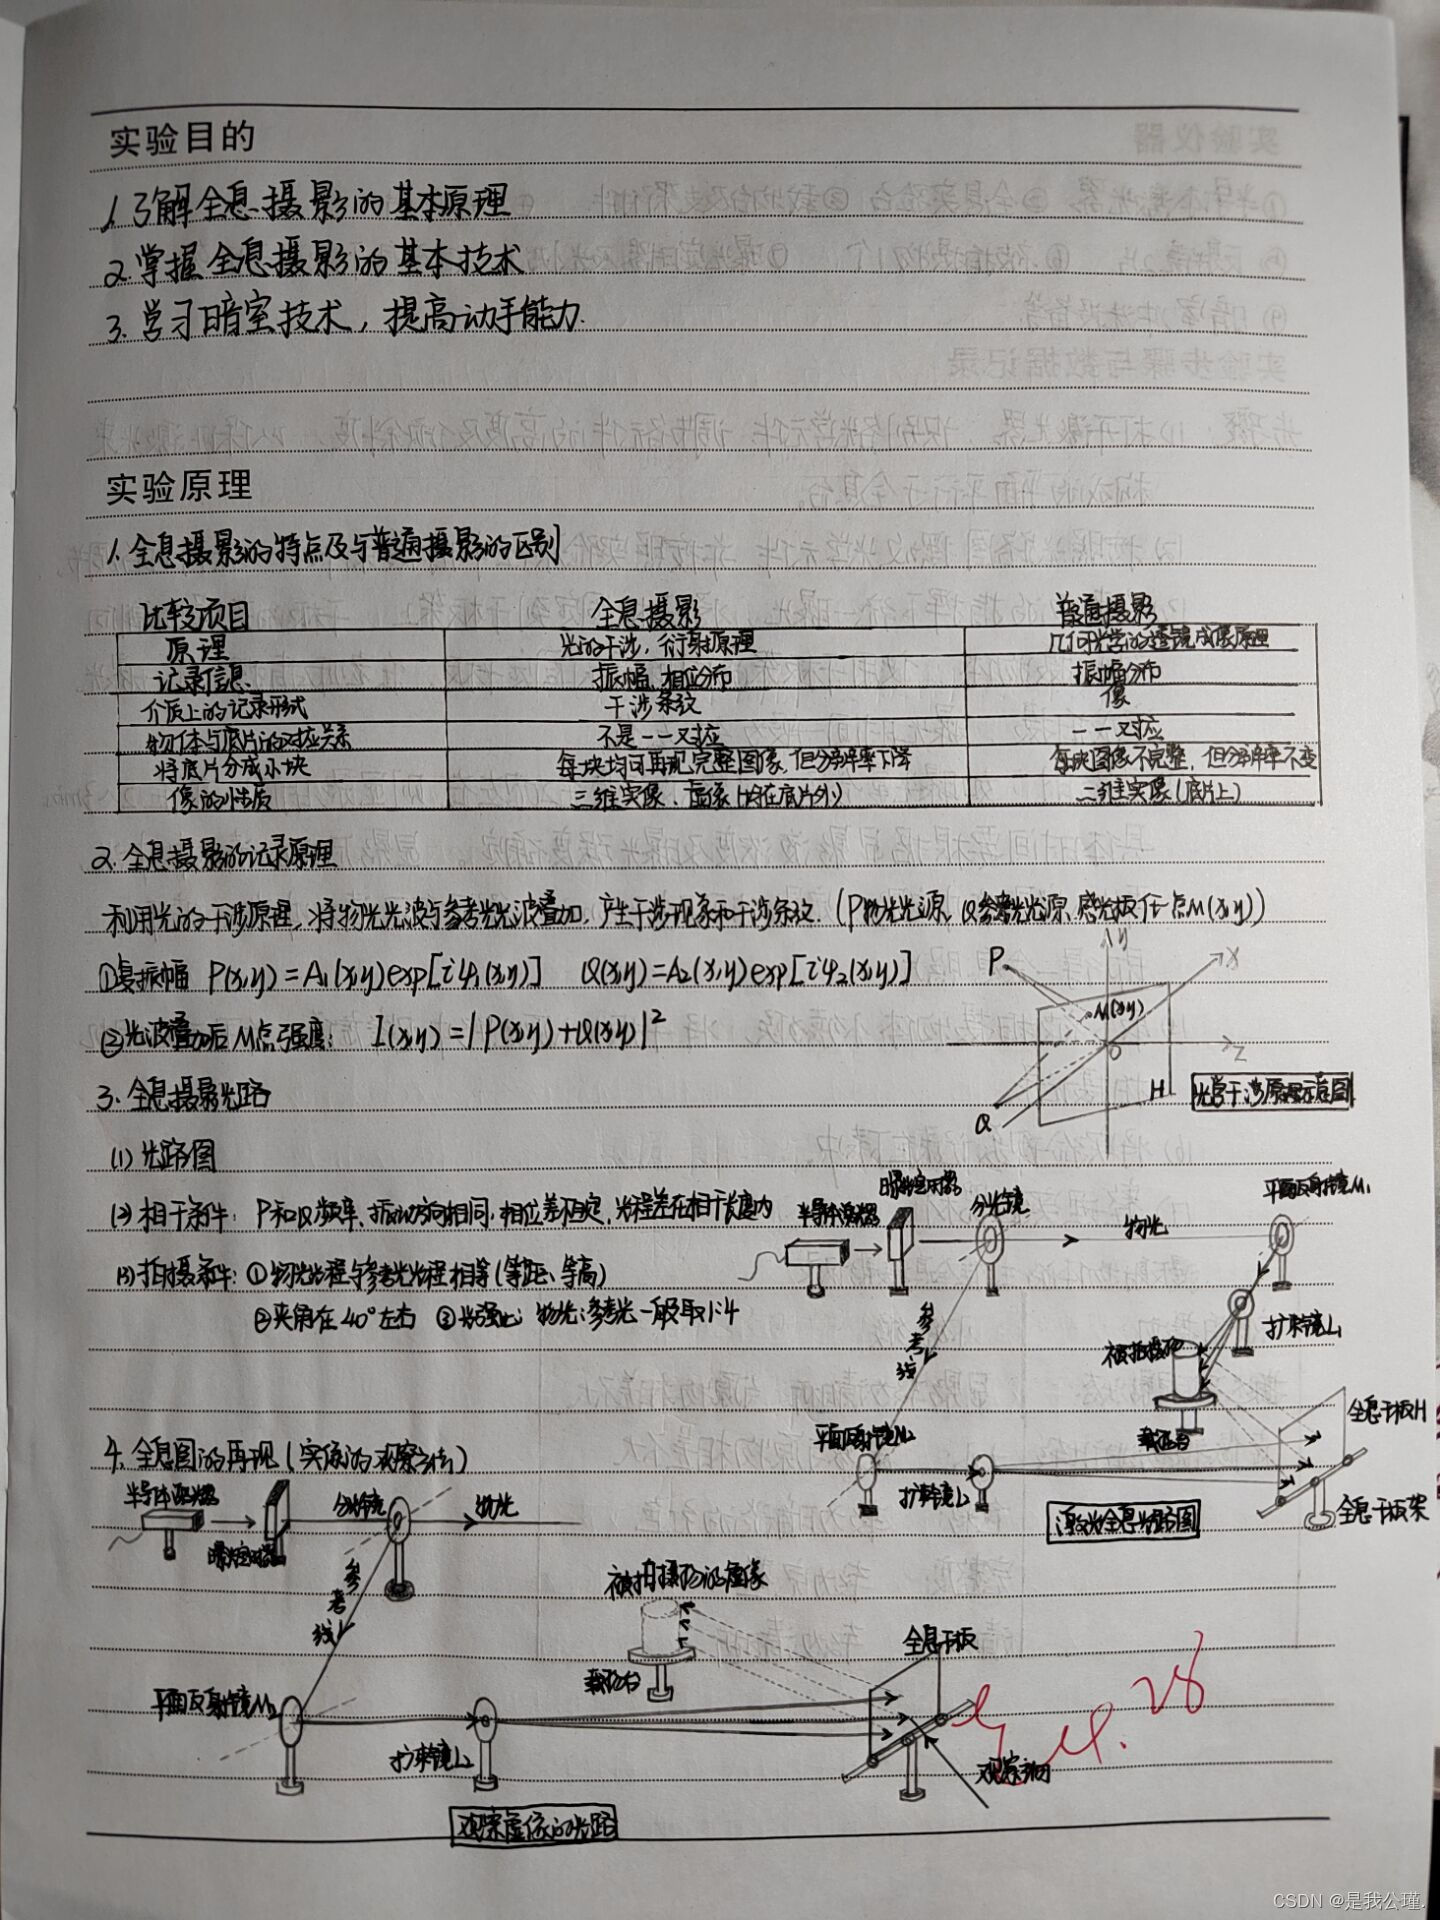 实验目的
1.了解全息摄影的基本原理
2.掌握全息摄影的基本技术
3.学习暗室技术，提高动手能力.
实验原理
1.全息摄影的特点及与普通摄影的区别
比较项目 全息摄影 普通摄影
原理 光的干涉，衍射原理 几何光学的透镜成像原理
记录信息 振幅、相位分布 振幅分布
介质上的记录形式 干涉条纹 像
物体与底片的对应关系 不是一一对应 一一对应
将底片分成小块 每块均可再现完整图像，但分辨率下降 每块图像不完整，但分辨率不变
像的性质 三维实像、虚像(均在底片外) 二维实像(底片上)
2.全息摄影的记录原理
利用光的干涉原理，将物光光波与参考光光波叠加，产生干涉现象和干涉条纹.(P物光光源，Q参考光光源，感光板任一点M(x,y))
①复振幅 P(x,y)=A₁(x,y)exp[iφ₁(x,y)] Q(x,y)=A₂(x,y)exp[iφ₂(x,y)]
②光波叠加后M点强度: I(x,y)=|P(x,y)+Q(x,y)|²
P y x M(x,y) O z H Q
3.全息摄影光路
光学干涉原理示意图
(1)光路图
(2)相干条件: P和Q频率、振动方向相同，相位差恒定，光程差在相干长度内
(3)拍摄条件: ①物光光程与参考光光程相等(等距、等高)
②夹角在40°左右 ③光强比: 物光:参考光一般取1:4
半导体激光器 曝光定时器 分光镜 物光 平面反射镜M₁
参考线 扩束镜L₁
被拍摄物
载物台 全息干板H
平面反射镜M₂ 扩束镜L₂ 全息干板架
激光全息光路图
4.全息图的再现(实像的观察方法)
半导体激光器 曝光定时器 分光镜 物光
参考线
被拍摄物的虚像
载物台 全息干板
平面反射镜M₂ 扩束镜L₂ 观察方向
观察虚像的光路
CSDN @是我公瑾.